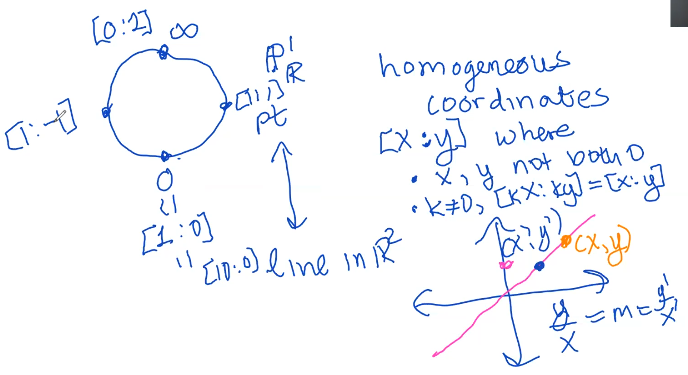 [0:1] ∞
P¹ℝ
[1:1]
pt
[1:-1]
0
[1:0]
[10:0] line in ℝ²
homogeneous
coordinates
[x:y] where
• x, y not both 0
• k≠0, [kx:ky]=[x:y]
(x',y')
(x,y)
y/x = m = y'/x'